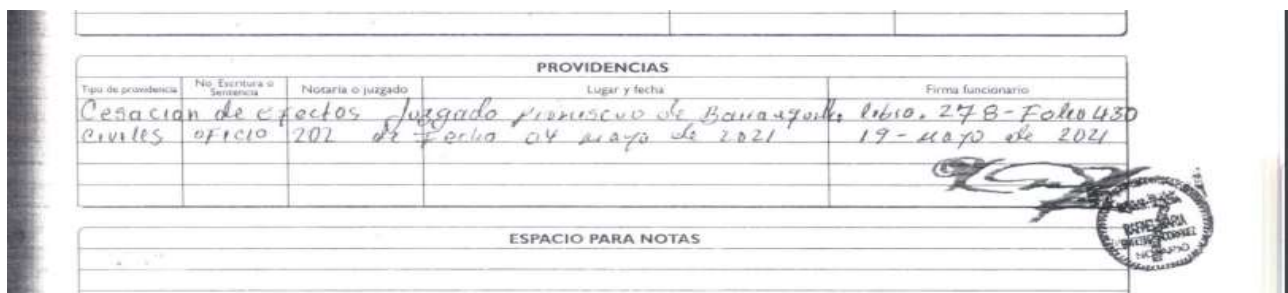 PROVIDENCIAS
Tipo de providencia No. Escritura o Sentencia Notaría o juzgado Lugar y fecha Firma funcionario
Cesacion de efectos Juzgado Promiscuo de Barranquilla libro. 278-Folio 430
Civiles oficio 202 de Fecha 04 mayo de 2021 19-mayo de 2021
NOTARIO
ESPACIO PARA NOTAS